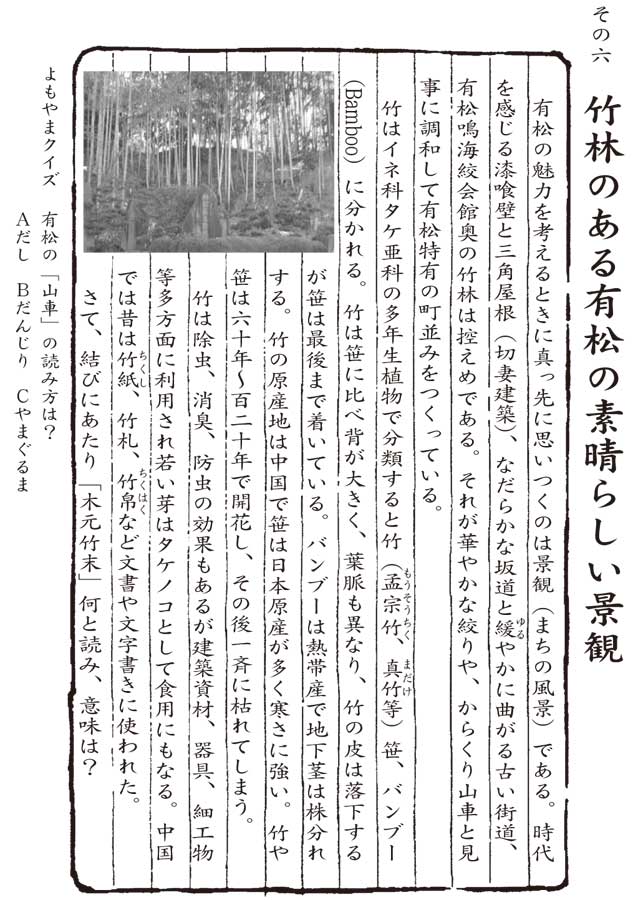 その六
竹林のある有松の素晴らしい景観
有松の魅力を考えるときに真っ先に思いつくのは景観（まちの風景）である。時代
を感じる漆喰壁と三角屋根（切妻建築）、なだらかな坂道と緩やかに曲がる古い街道、
ゆる
有松鳴海絞会館奥の竹林は控えめである。それが華やかな絞りや、からくり山車と見
事に調和して有松特有の町並みをつくっている。
竹はイネ科タケ亜科の多年生植物で分類すると竹（孟宗竹、真竹等）笹、バンブー
もうそうちく
まだけ
（Bamboo）に分かれる。竹は笹に比べ背が大きく、葉脈も異なり、竹の皮は落下する
が笹は最後まで着いている。バンブーは熱帯産で地下茎は株分れ
する。竹の原産地は中国で笹は日本原産が多く寒さに強い。竹や
笹は六十年～百二十年で開花し、その後一斉に枯れてしまう。
竹は除虫、消臭、防虫の効果もあるが建築資材、器具、細工物
等多方面に利用され若い芽はタケノコとして食用にもなる。中国
では昔は竹紙、竹札、竹帛など文書や文字書きに使われた。
ちくし
ちくはく
さて、結びにあたり「木元竹末」何と読み、意味は？
よもやまクイズ　有松の「山車」の読み方は？
Ａだし　Ｂだんじり　Ｃやまぐるま